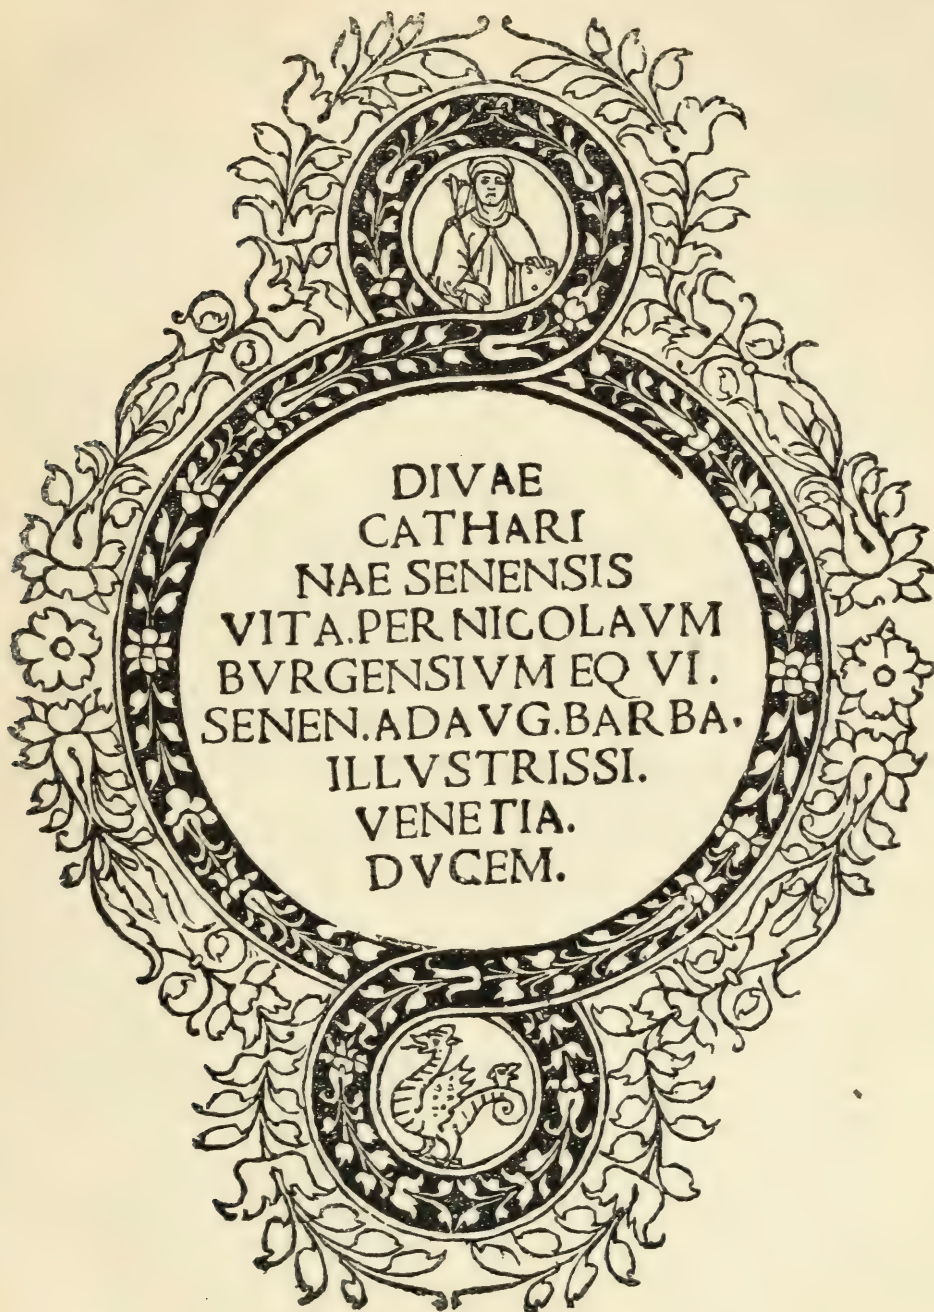 DIVAE
CATHARI
NAE SENENSIS
VITA.PER NICOLAVM
BVRGENSIVM EQ VI.
SENEN.ADAVG.BARBA.
ILLVSTRISSI.
VENETIA.
DVCEM.